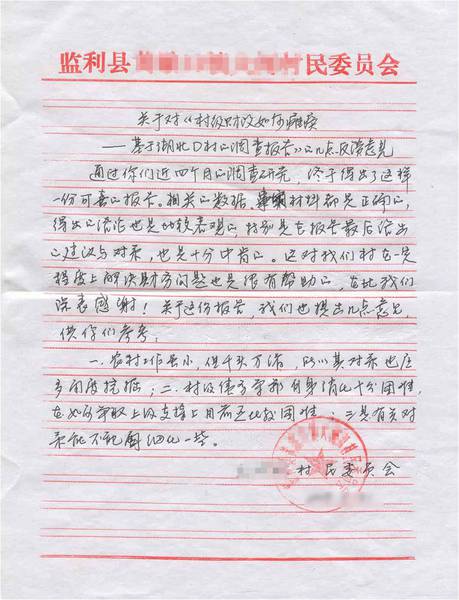 监利县 民委员会
关于对《村级财政如何瘫痪
——基于湖北D村的调查报告》的几点反馈意见
通过你们近四个月的调查研究，终于得出了这样
一份可喜的报告。相关的数据、事实材料都是正确的，
得出的结论也是比较客观的，特别是在报告最后给出
的建议与对策，也是十分中肯的。这对我们村在一定
程度上解决财务问题也是很有帮助的，在此我们
深表感谢！关于这份报告，我们也提出几点意见，
供你们参考：
一、农村工作虽小，但千头万绪，所以其对策也应
多角度挖掘；二、村级债务学部自身消化十分困难，
在 争取上级支持上目前还比较困难；三是有关对
策能不能 细化一些。
村民委员会